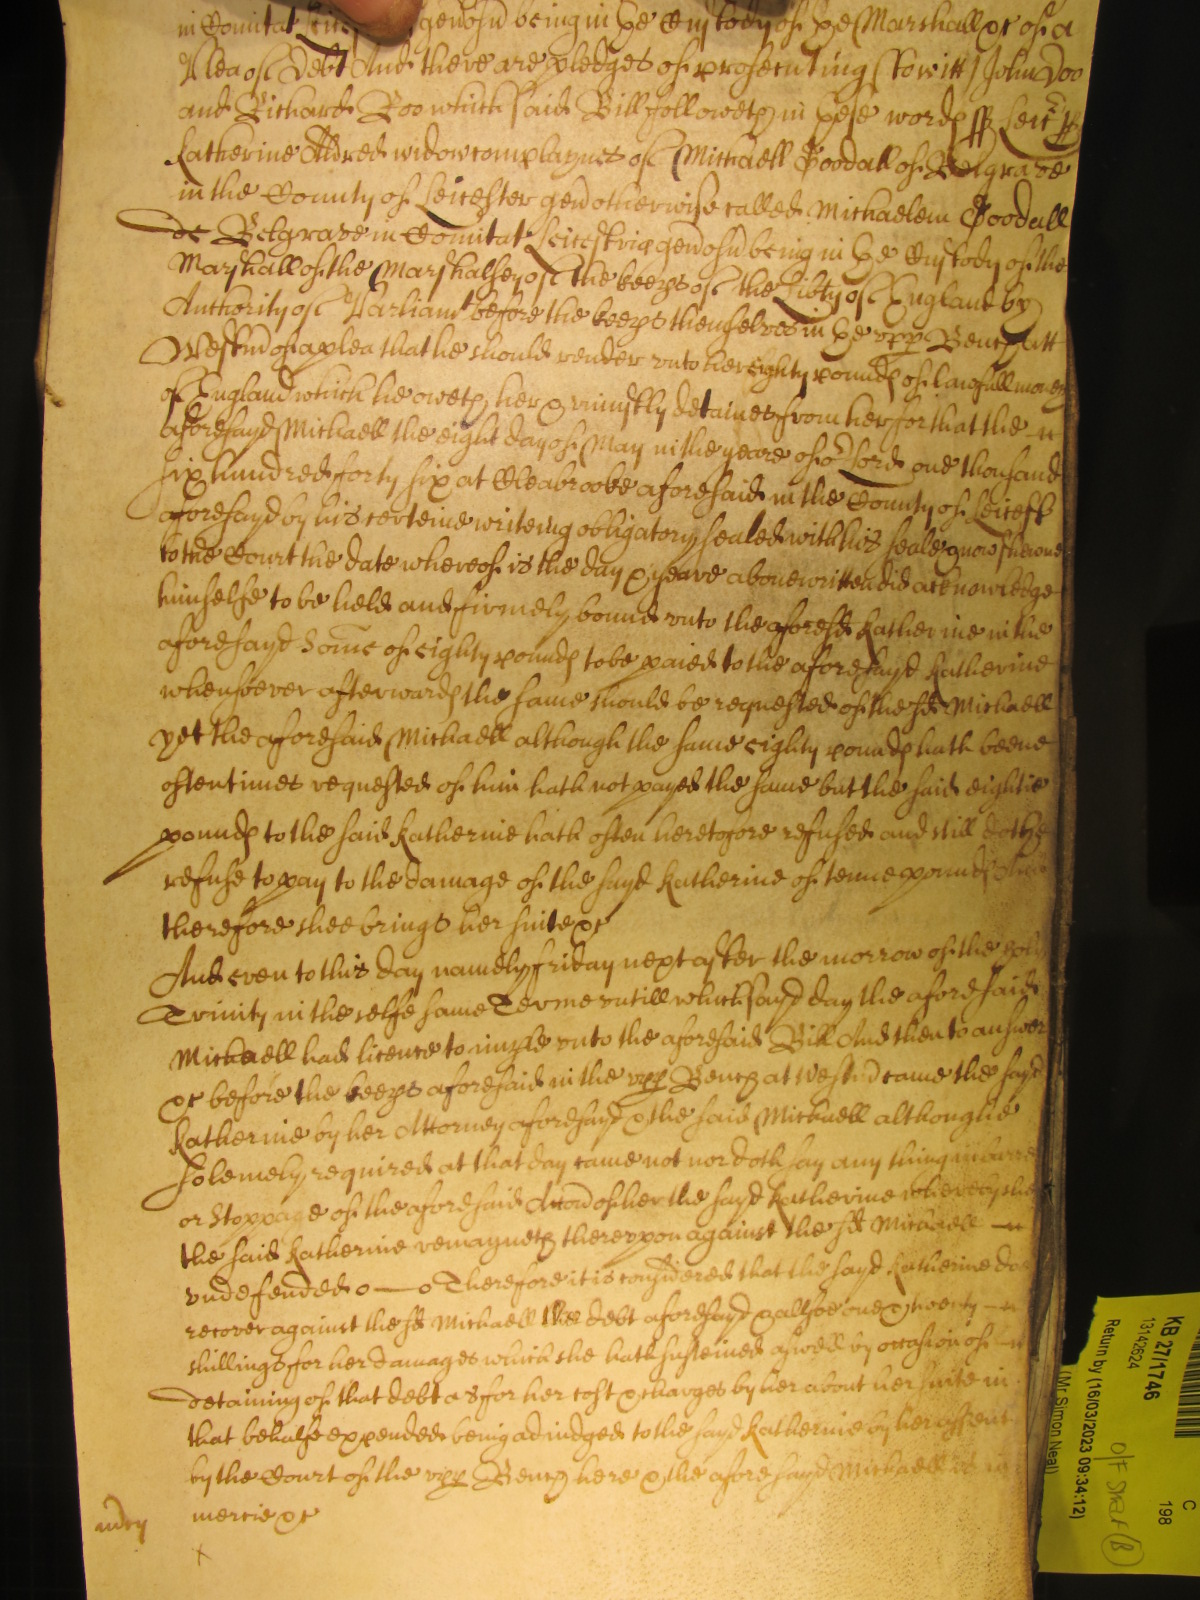 in Comitat Leic genosu being in the Custody of the Marshall &c of a
Plea of Debt And there are pledges of prosecuting (to witt) John Doo
and Richard Roo which said Bill followeth in these words ss Leic ss
Katherine Aldred widow complaynes of Michaell Goodall of Belgrave
in the County of Leicester gen otherwise called Michaelem Goodall
de Belgrave in Comitat Leicestrie genosu being in the Custody of the
Marshall of the Marshalsey of the keeps of the Libty of England by
Authority of Parliamt before the keeps themselves in the upp Bench att
Westm of a plea that he should render unto her eighty pounds of lawfull money
of England which he oweth her & uniustly detaines from her for that the
aforesayd Michaell the eight day of May in the yeare of or Lord one thousand
six hundred forty six at Cleabrooke aforesaid in the County of Leicestr
aforesayd by his certeine writeing obligatory sealed with his seale & now shewne
to the Court the date whereof is the day & yeare above written did acknowledge
himselfe to be held and firmely bound unto the aforesd Katherine in the
aforesayd Some of eighty pounds to be paied to the aforesayd Katherine
whensoever afterwards the same should be requested of the sd Michaell
yet the aforesaid Michaell although the same eighty pounds hath beene
oftentimes requested of him hath not payed the same but the said eightie
pounds to the said Katherine hath often heretofore refused and still doth
refuse to pay to the damage of the sayd Katherine of tenne pounds And
therefore shee brings her suite &c
And even to this day namely friday next after the morrow of the holy
Trinity in the selfe same Terme untill which sayd day the aforesaid
Michaell had licence to imple unto the aforesaid Bill And then to answer
&c before the keeps aforesaid in the upp Bench at Westm came the sayd
Katherine by her Attorney aforesayd & the said Michaell although he
solemely required at that day came not nor doth say any thing in barre
or Stoppage of the aforesaid Accon of her the sayd Katherine whereby she
the said Katherine remayneth thereupon against the sd Michaell
undefended Therefore it is considered that the sayd Katherine doe
recover against the sd Michaell the debt aforesayd & allsoe one & twenty
shillings for her damages which she hath susteined aswell by occasion of
detaining of that debt as for her cost & charges by her about her suite in
that behalfe expended being adiudged to the sayd Katherine by her assent
by the Court of the upp Bench here & the aforesayd Michaell is in
mercie &c
mcy
KB 27/1746
13142624
Return by (16/03/2023 09:34:12)
(Mr Simon Neal)
C
198